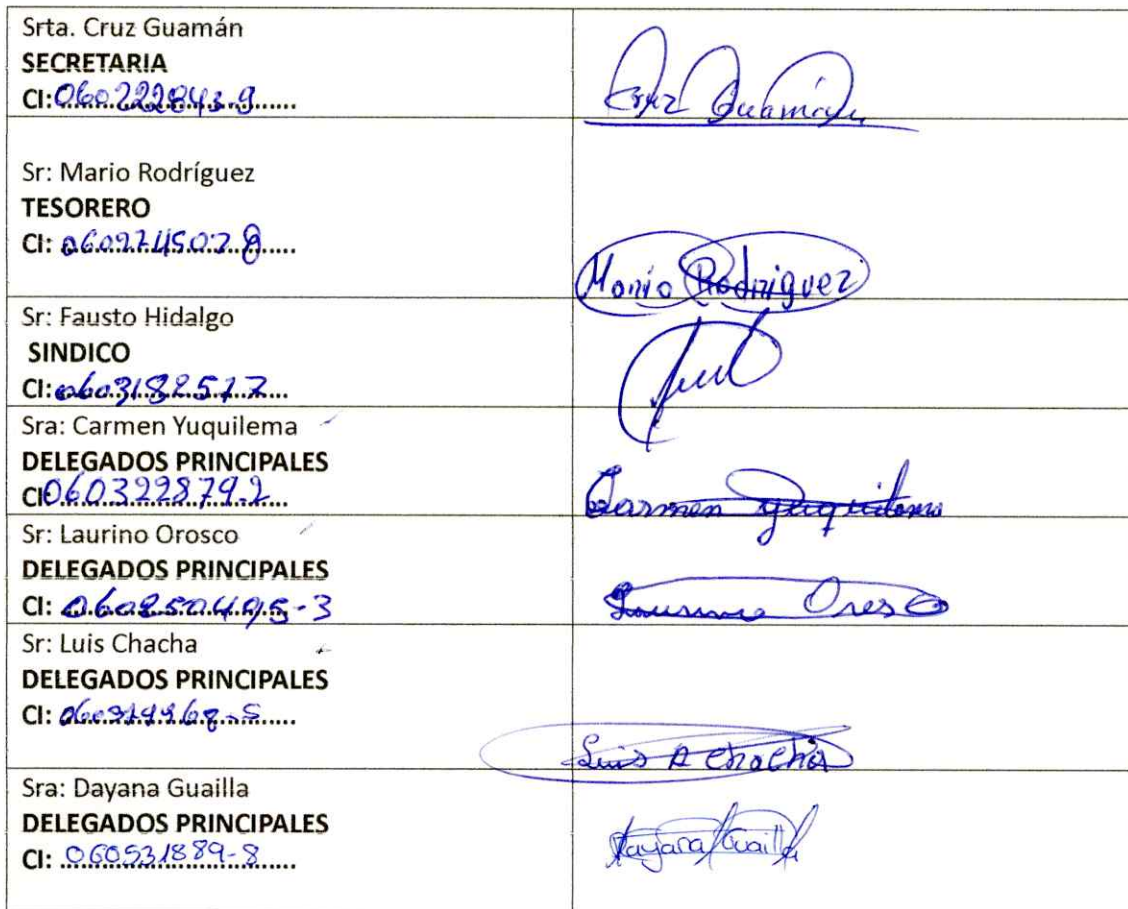 Srta. Cruz Guamán
SECRETARIA
CI: 060222843-9
Cruz Guamán
Sr: Mario Rodríguez
TESORERO
CI: 060274502 8
Mario Rodriguez
Sr: Fausto Hidalgo
SINDICO
CI: 0603182517
Sra: Carmen Yuquilema
DELEGADOS PRINCIPALES
CI: 060322879-2
Carmen Yuquilema
Sr: Laurino Orosco
DELEGADOS PRINCIPALES
CI: 060250495-3
Sr: Luis Chacha
DELEGADOS PRINCIPALES
CI:
Luis A Chacha
Sra: Dayana Guailla
DELEGADOS PRINCIPALES
CI: 060531889-8
Dayana Guailla